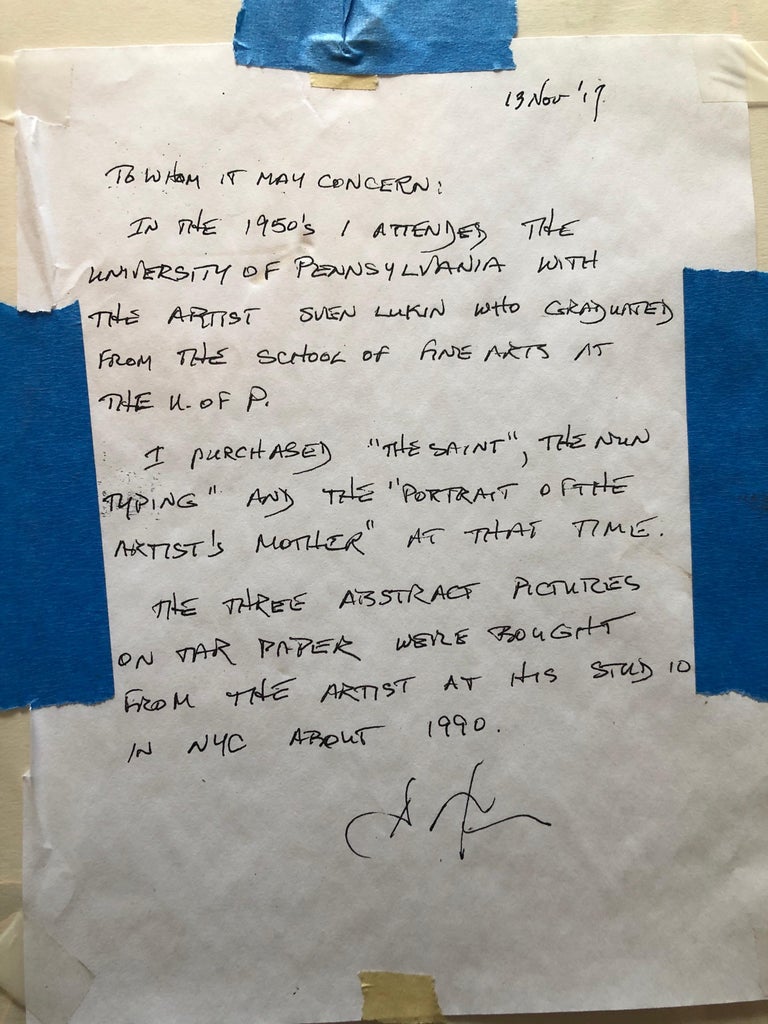 13 Nov '19
TO WHOM IT MAY CONCERN:
IN THE 1950's I ATTENDED THE
UNIVERSITY OF PENNSYLVANIA WITH
THE ARTIST SVEN LUKIN WHO GRADUATED
FROM THE SCHOOL OF FINE ARTS AT
THE U. OF P.
I PURCHASED "THE SAINT", THE NUN
TYPING" AND THE "PORTRAIT OF THE
ARTIST'S MOTHER" AT THAT TIME.
THE THREE ABSTRACT PICTURES
ON TAR PAPER WERE BOUGHT
FROM THE ARTIST AT HIS STUDIO
IN NYC ABOUT 1990.